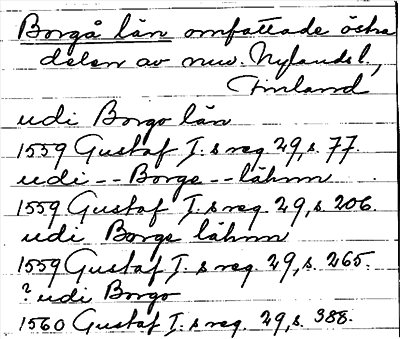 Borgå län omfattade östra
delen av nuv. Nylands l.,
Finland
udi Borgo län
1559 Gustaf I. s reg. 29, s. 77.
udi -- Borge -- lähnn
1559 Gustaf I. s reg. 29, s. 206.
udi Borge lähnn
1559 Gustaf I. s reg. 29, s. 265.
? udi Borgo
1560 Gustaf I. s reg. 29, s. 388.